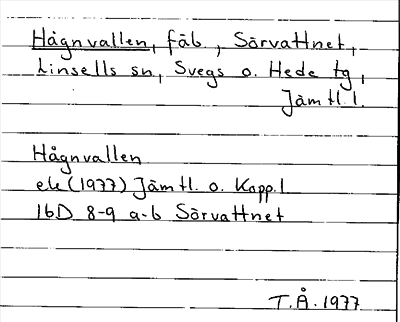 Hågnvallen, fäb., Sörvattnet,
Linsells sn, Svegs o. Hede tg,
Jämtl. l.
Hågnvallen
ek (1977) Jämtl. o. Kopp. l
16D 8-9 a-b Sörvattnet
T.Å. 1977